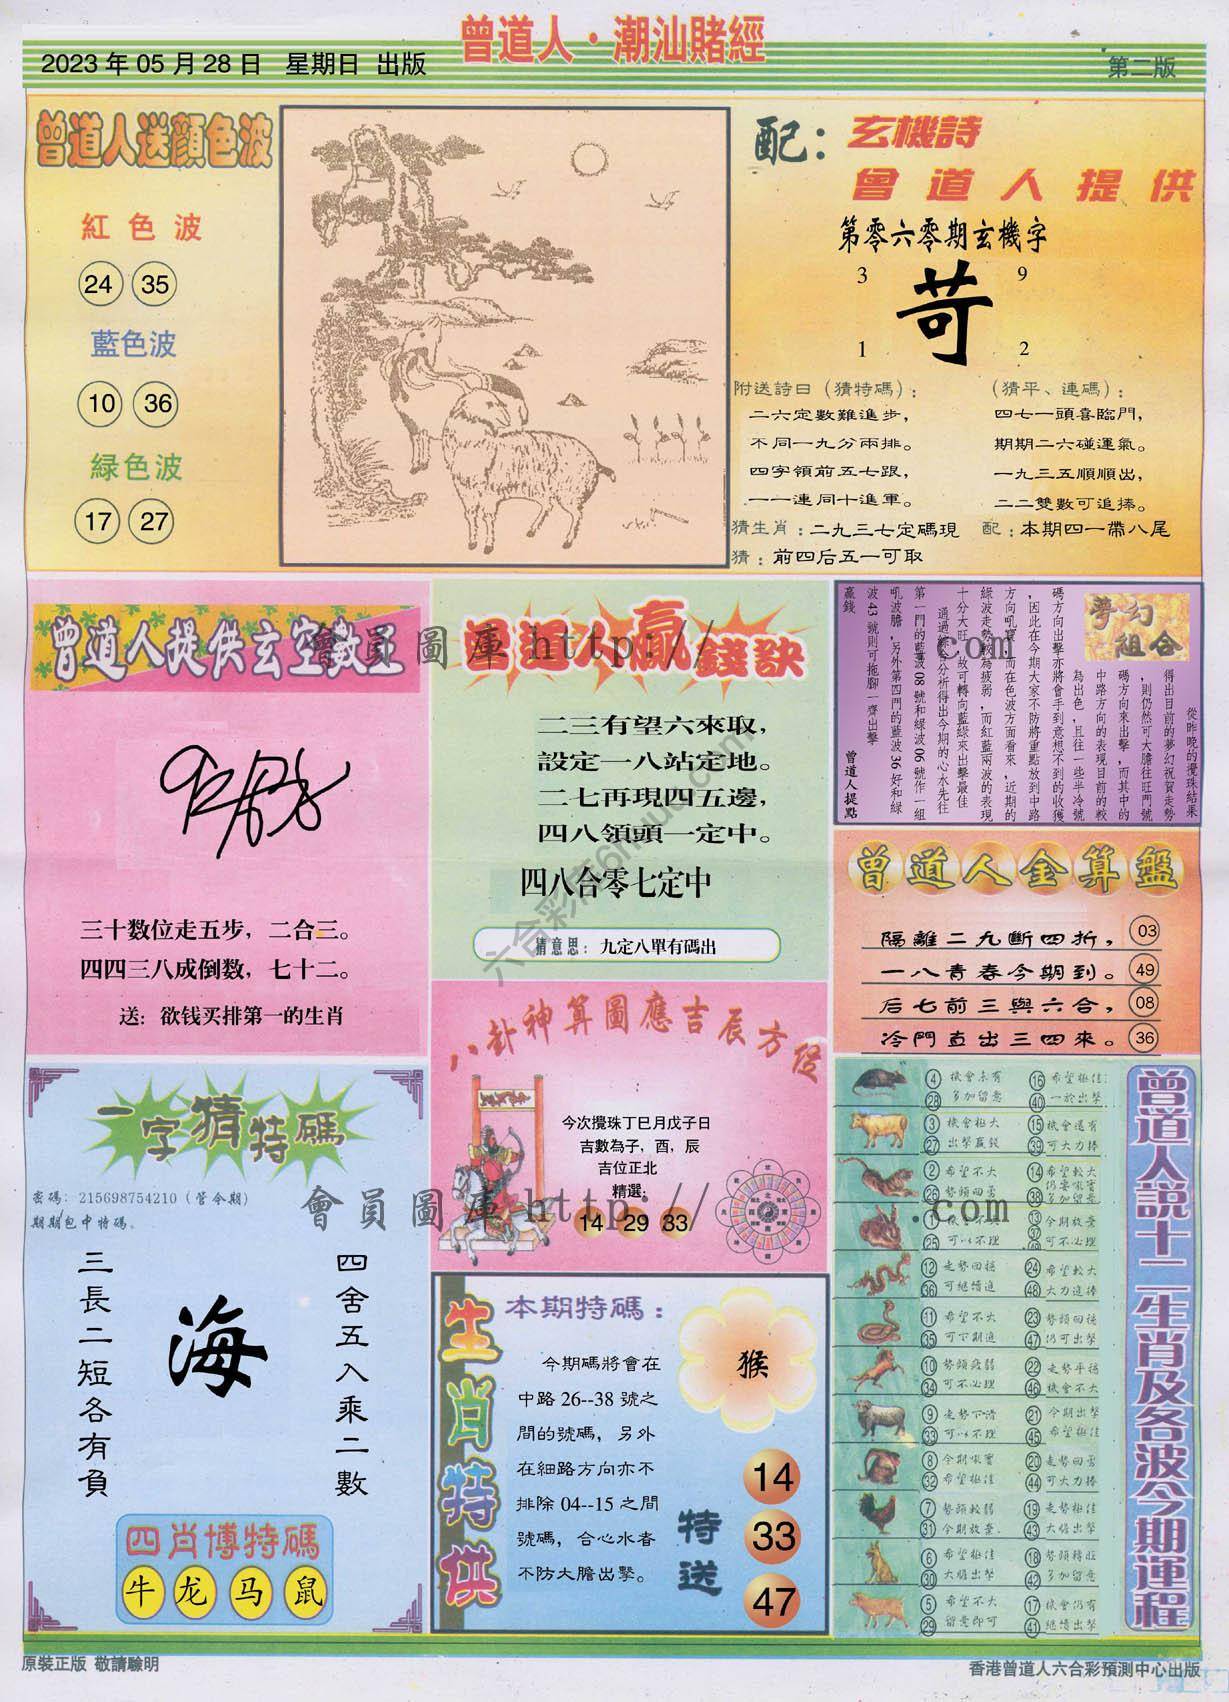 曾道人·潮汕賭經
2023 年 05 月 28 日 星期日 出版
第二版
曾道人送顏色波
紅色波
24 35
藍色波
10 36
緑色波
17 27
配：玄機詩
曾道人提供
第零六零期玄機字
3 9
苛
1 2
附送詩曰（猜特碼）：
二六定數難進步，
不同一九分兩排。
四字領前五七跟，
一一連同十進軍。
（猜平、連碼）：
四七一頭喜臨門，
期期二六碰運氣。
一九三五順順出，
二二雙數可追捧。
猜生肖：二九三七定碼現
配：本期四一帶八尾
猜：前四后五一可取
曾道人提供玄空數王
三十数位走五步，二合三。
四四三八成倒数，七十二。
送：欲钱买排第一的生肖
曾道人贏錢訣
二三有望六來取，
設定一八站定地。
二七再現四五邊，
四八領頭一定中。
四八合零七定中
猜意思：九定八單有碼出
夢幻組合
從昨晚的攪珠結果
得出目前的夢幻祝賀走勢
，則仍然可大膽往旺門號
碼方向來出擊，而其中的
中路方向的表現目前的較
為出色，且往一些半冷號
碼方向出擊亦將會手到意想不到的收獲
，因此在今期大家不防將重點放到中路
方向吼寶，而在色波方面看來，近期的
綠波走勢較為疲弱，而紅藍兩波的表現
十分大旺，故可轉向藍綠來出擊最佳
通過綜合分析得出今期的心水先往
第一門的藍波 08 號和緑波 06 號作一組
吼波膽，另外第四門的藍波 36 好和綠
波 43 號則可拖腳一齊出擊
贏錢
曾道人提點
曾道人金算盤
隔離二九斷四折， 03
一八青春今期到。 49
后七前三與六合， 08
冷門直出三四來。 36
一字猜特碼
密碼：215698754210（管今期）
期期包中特碼。
三長二短各有負
海
四舍五入乘二數
四肖博特碼
牛 龙 马 鼠
八卦神算圖應吉辰方位
今次攪珠丁巳月戊子日
吉數為子，酉，辰
吉位正北
精選：
14 29 33
生肖特供
本期特碼：
今期碼將會在
中路 26--38 號之
間的號碼，另外
在細路方向亦不
排除 04--15 之間
號碼，合心水者
不防大膽出擊。
猴
特送
14
33
47
曾道人說十二生肖及各波今期運程
4 機會未有 16 希望極佳
28 多加留意 40 一於出擊
3 機會極大 15 機會還有
27 出擊贏錢 39 可大力捧
2 希望不大 14 希望較大
26 勢頭回勇 38 多加留意
13 今期放棄
25 可以不理 可不必理
12 走勢回穩 24 希望較大
36 可繼續追 48 大力追捧
11 希望不大 23 勢頭回穩
35 可下期追 47 仍可出擊
10 勢頭疲弱 22 走勢平穩
34 可不必理 46 機會不大
9 走勢下滑 21 今期出擊
33 可以不理 45 希望極佳
8 今期吼實 20 走勢回勇
32 希望極佳 44 可大力捧
7 勢頭較弱 19 走勢極佳
31 今期放棄 43 大膽出擊
6 希望極佳 18 勢頭轉旺
30 大膽出擊 42 多加留意
5 希望不大 17 機會仍有
29 留意即可 41 繼續出擊
會員圖庫 http:// .com
會員圖庫 http:// .com
原裝正版 敬請驗明
香港曾道人六合彩預測中心出版